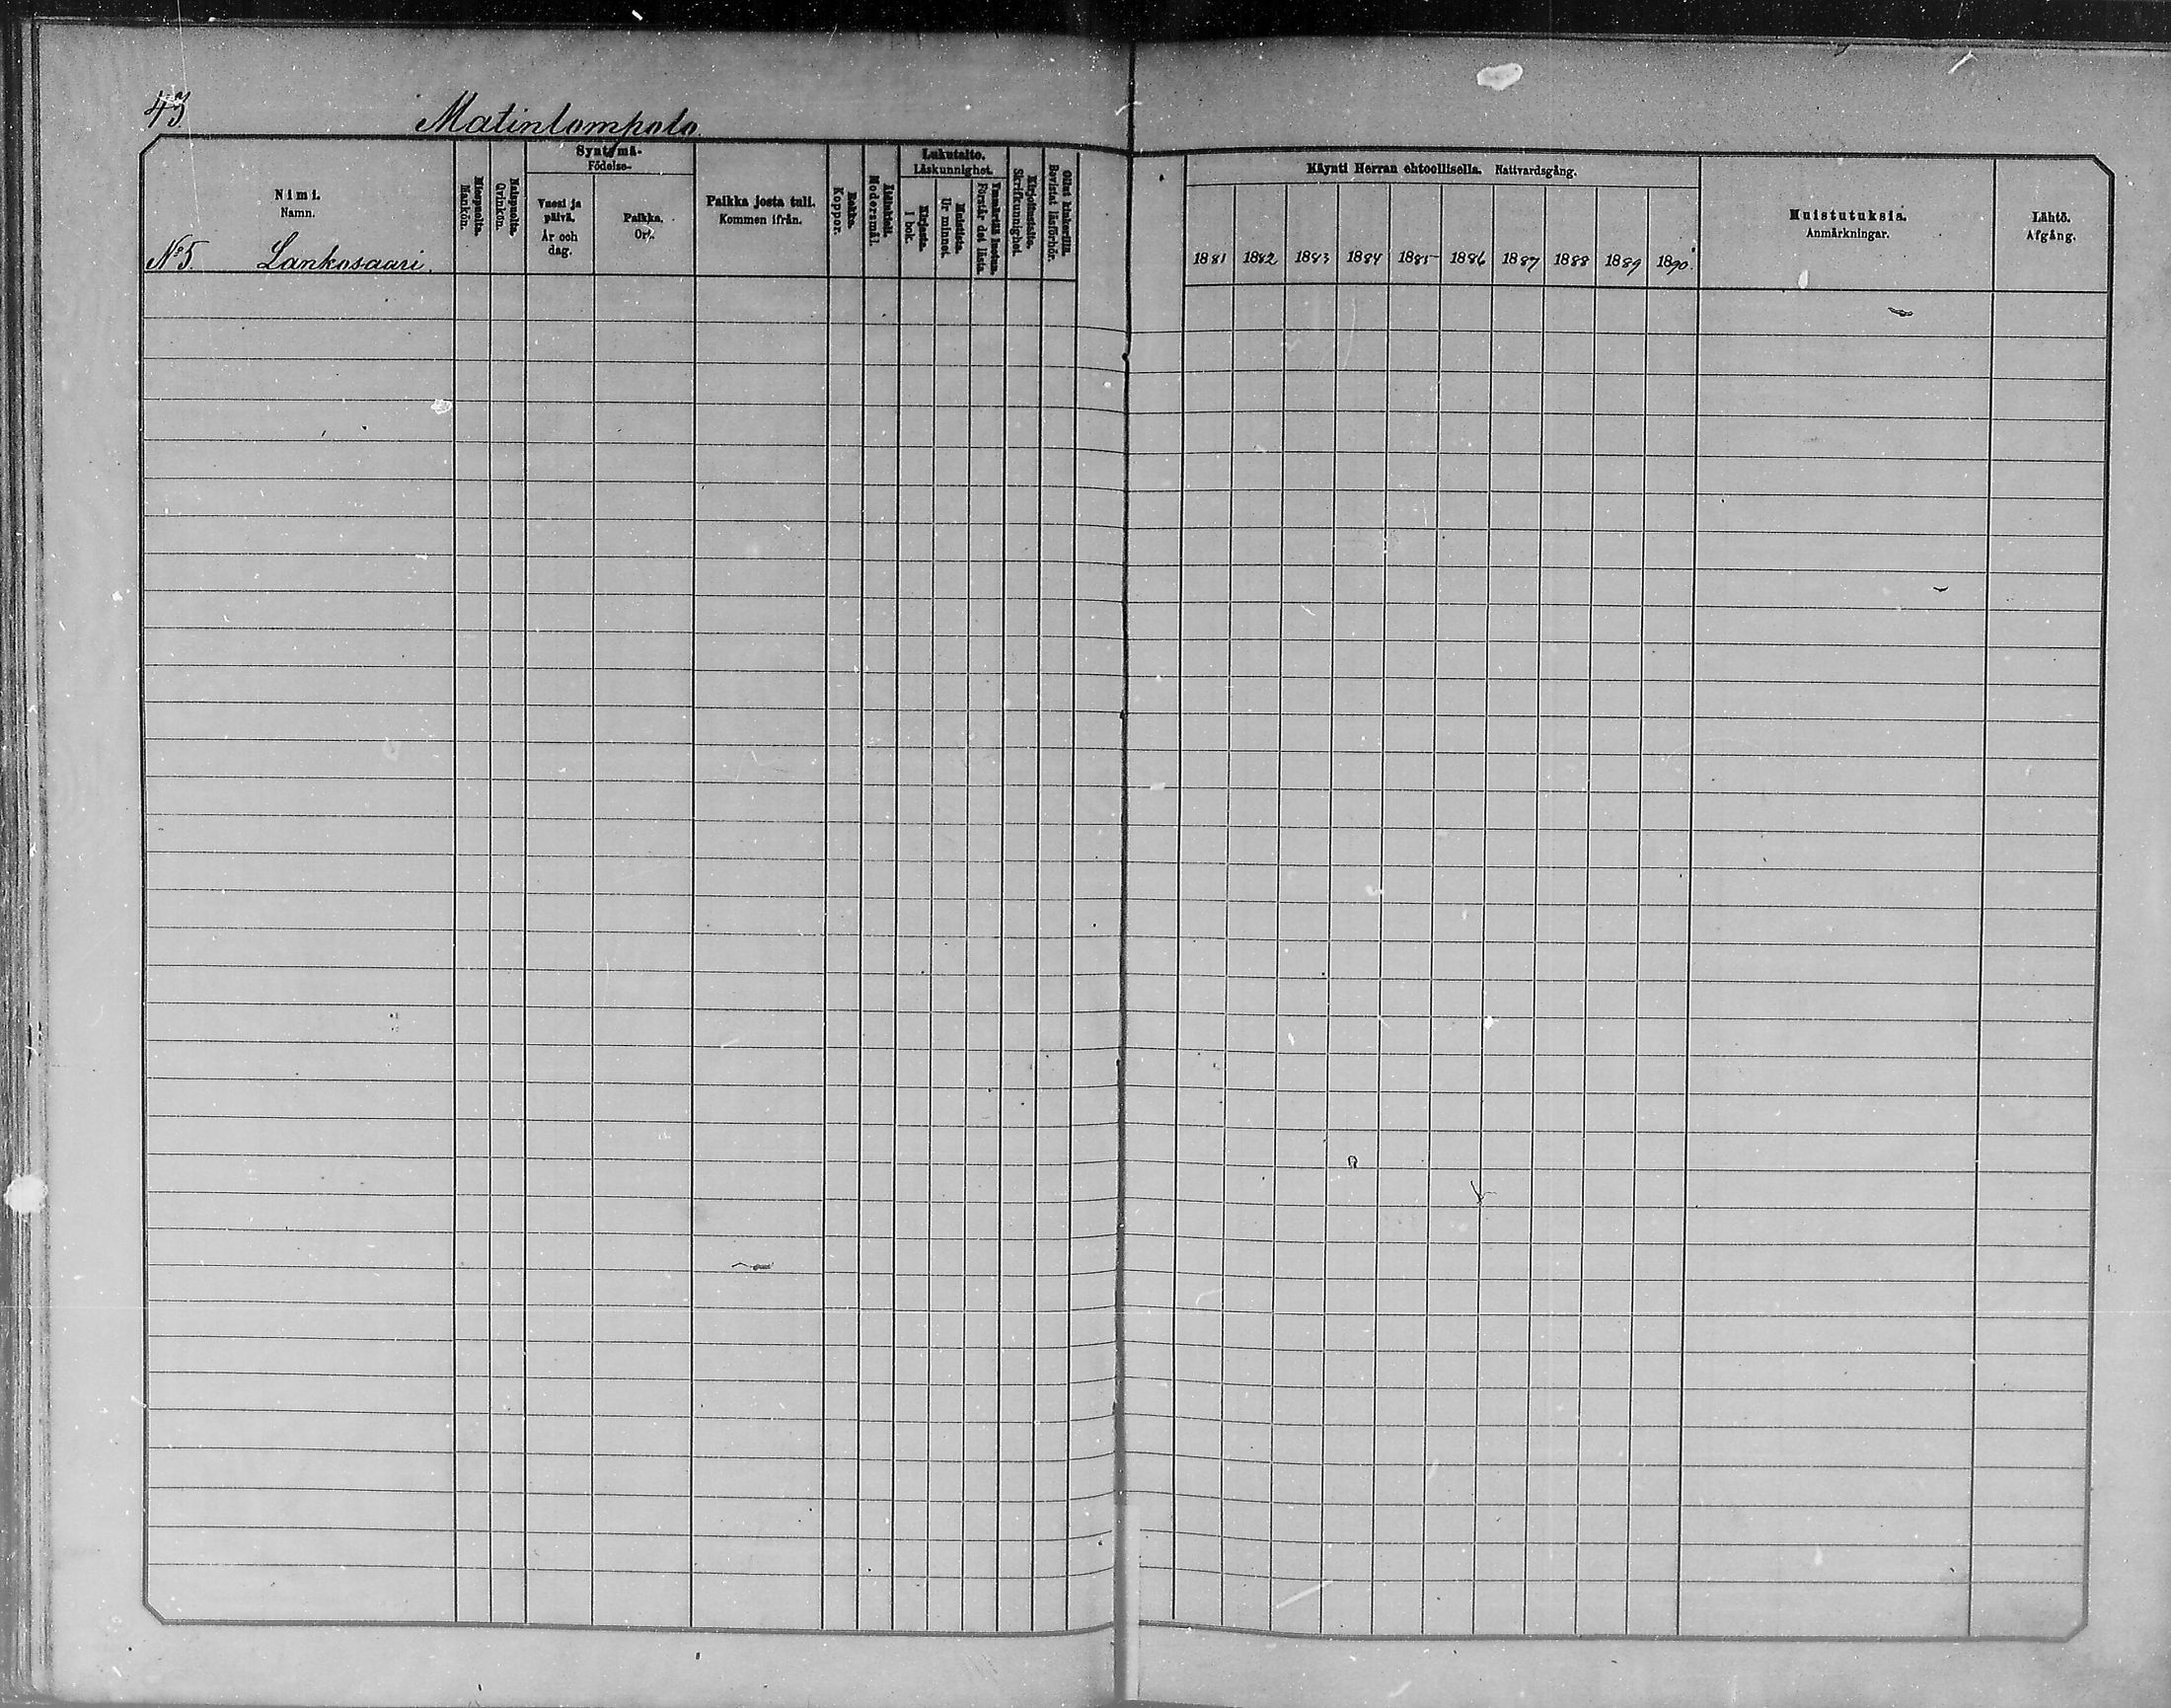 43.
Matinlompolo
Nimi.
Namn.
Nº5. Lankosaari.
Miespuolia.
Mankön.
Naispuolia.
Qvinkön.
Syntymä-
Födelse-
Vuosi ja
päivä.
År och
dag.
Paikka.
Ort.
Paikka josta tuli.
Kommen ifrån.
Rokko.
Koppor.
Äidinkieli.
Modersmål.
Lukutaito.
Läskunnighet.
Kirjasta.
I bok.
Muistista.
Ur minnet.
Ymmärtää luetun.
Förstår det lästa.
Kirjoitustaito.
Skrifkunnighet.
Ollut kinkerillä.
Bevistat läsförhör.
Käynti Herran ehtoollisella. Nattvardsgång.
1881 1882 1883 1884 1885 1886 1887 1888 1889 1890.
Muistutuksia.
Anmärkningar.
Lähtö.
Afgång.